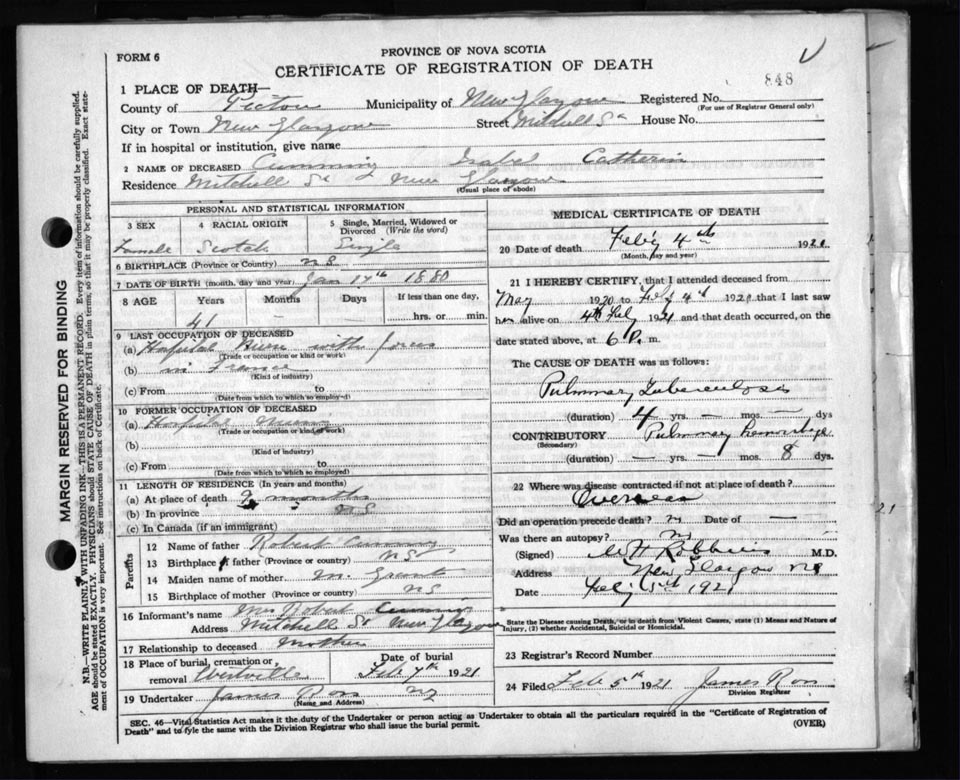 FORM 6
PROVINCE OF NOVA SCOTIA
CERTIFICATE OF REGISTRATION OF DEATH
848
1 PLACE OF DEATH—
County of Pictou Municipality of New Glasgow Registered No.
(For use of Registrar General only)
City or Town New Glasgow Street Mitchell St House No.
If in hospital or institution, give name
2 NAME OF DECEASED Cumming Isabel Catherin
Residence Mitchell St New Glasgow
(Usual place of abode)
PERSONAL AND STATISTICAL INFORMATION
3 SEX 4 RACIAL ORIGIN 5 Single, Married, Widowed or Divorced (Write the word)
Female Scotch Single
6 BIRTHPLACE (Province or Country) NS
7 DATE OF BIRTH (month, day and year) Jan 14th 1880
8 AGE Years Months Days If less than one day,
41 — hrs. or min.
9 LAST OCCUPATION OF DECEASED
(a) Hospital Nurse with forces
(Trade or occupation or kind or work)
(b) in France
(Kind of industry)
(c) From to
(Date from which to which so employed)
10 FORMER OCCUPATION OF DECEASED
(a) Hospital Nursing
(Trade or occupation or kind of work)
(b)
(Kind of industry)
(c) From to
(Date from which to which so employed)
11 LENGTH OF RESIDENCE (In years and months)
(a) At place of death 9 months
(b) In province NS
(c) In Canada (if an immigrant)
Parents
12 Name of father Robert Cumming
13 Birthplace of father (Province or country) NS
14 Maiden name of mother M. Grant
15 Birthplace of mother (Province or country) NS
16 Informant's name Mrs Robert Cumming
Address Mitchell St New Glasgow
17 Relationship to deceased Mother
18 Place of burial, cremation, or removal Westville Date of burial Feb 7th 1921
19 Undertaker James Ross NG
(Name and Address)
MEDICAL CERTIFICATE OF DEATH
20 Date of death Feb'y 4th 1921
(Month, day and year)
21 I HEREBY CERTIFY, that I attended deceased from
May 1920 to Feb'y 4th 1921 that I last saw
her alive on 4th Feb'y 1921 and that death occurred, on the
date stated above, at 6 P. m.
The CAUSE OF DEATH was as follows:
Pulmonary Tuberculosis
(duration) 4 yrs. — mos. — dys
CONTRIBUTORY Pulmonary hemorrhage
(Secondary)
(duration) — yrs. — mos. 8 dys.
22 Where was disease contracted if not at place of death?
Overseas
Did an operation precede death? no Date of —
Was there an autopsy? no
(Signed) Robbins M.D.
Address New Glasgow NS
Date Feb'y 5th 1921
State the Disease causing Death, or in death from Violent Causes, state (1) Means and Nature of Injury, (2) whether Accidental, Suicidal or Homicidal.
23 Registrar's Record Number
24 Filed Feb 5th 1921 James Ross
Division Registrar
SEC. 46—Vital Statistics Act makes it the duty of the Undertaker or person acting as Undertaker to obtain all the particulars required in the "Certificate of Registration of
Death" and to fyle the same with the Division Registrar who shall issue the burial permit.
(OVER)
MARGIN RESERVED FOR BINDING
N.B.—WRITE PLAINLY WITH UNFADING INK—THIS IS A PERMANENT RECORD. Every item of information should be carefully supplied.
AGE should be stated EXACTLY. PHYSICIANS should STATE CAUSE OF DEATH in plain terms, so that it may be properly classified. Exact statement of OCCUPATION is very important. See instructions on back of Certificate.
21